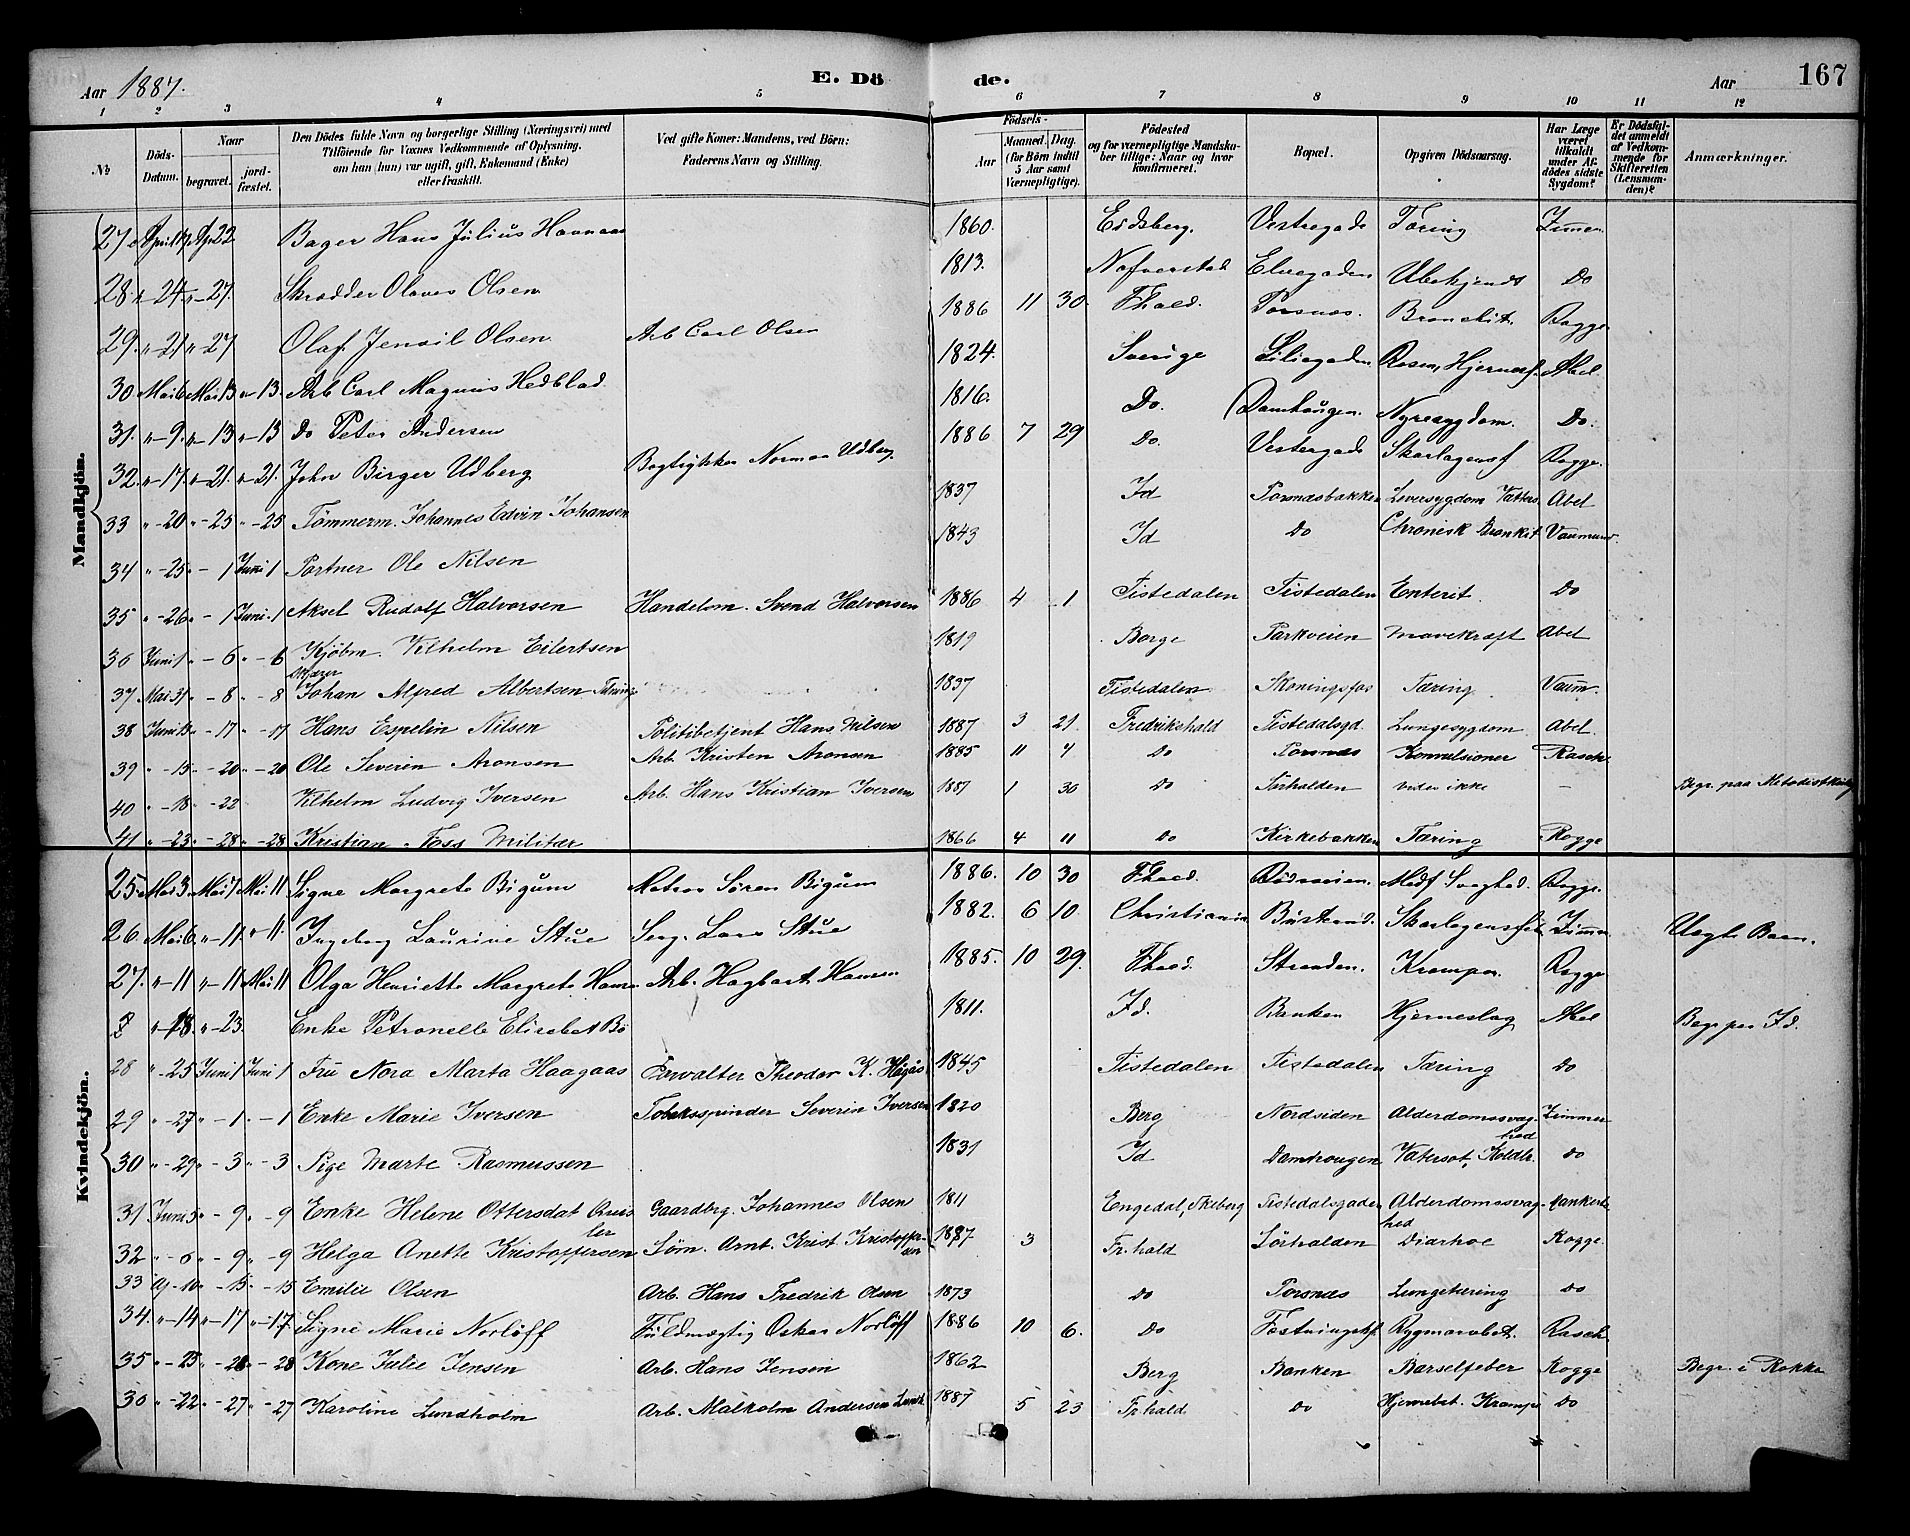 Aar 1887. E. Döde. Aar 167
1 2 3 4 5 6 7 8 9 10 11 12
№ Döds-Datum. Naar begravet. jordfæstet. Den Dödes fulde Navn og borgerlige Stilling (Næringsvei) med Tilföiende for Voxnes Vedkommende af Oplysning, om han (hun) var ugift, gift, Enkemand (Enke) eller fraskilt. Ved gifte Koner: Mandens, ved Börn: Faderens Navn og Stilling. Födsels- Aar Maaned Dag. (for Börn indtil 5 Aar samt Værnepligtige). Födested og for værnepligtige Mandskaber tillige: Naar og hvor konfirmeret. Bopæl. Opgiven Dödsaarsag. Har Læge været tilkaldt under Afdödes sidste Sygdom? Er Dödsfaldet anmeldt af Vedkommende for Skifteretten (Lensmanden)? Anmærkninger.
Mandkjön.
27 April 19 Apr 22 Bager Hans Julius 1860. Eidsberg. Vestregade Tæring Zimer
28 " - 24 " - 27. Skrædder Olaves Olsen 1813. Elvegaden Ubekjendt Do
29. " - 21 " - 27 Olaf Olsen Arb Carl Olsen 1886 11 30 Fhald. Torsnæs. Bronchit. Rogge
30 Mai 6 Mai 13 " - 13. Arb Carl Magnus Hedblad. 1824. Sverige Liliegaden Rosen, Abel.
31. " - 9. " - 13 " - 13 Do Peter Andersen 1816. Do. Damhaugen. Nyresygdom. Do.
32 " - 17. " - 21. " - 21. John Birger Udberg Udberg 1886 7 29 Do. Vestergade Skarlagensf Rogge.
33 " - 20 " - 25 " - 25 Tömmerm. Johannes Edvin Johansen 1837 Id Torsnæsbakken Leversygdom Abel
34 " - 25 " - 1 Juni 1 Portner Ole Nilsen 1843 Id Do Chronisk Bronkit
35 " - 26 " - 1 Juni 1 Aksel Rudolf Halvorsen Handelsm. Svend Halvorsen 1886 4 1 Tistedalen Tistedalen Enterit. Do
36 Juni 1 " - 6 " - 6 Kjöbm. Vilhelm Eilertsen 1819 Borge Parkveien Mavekræft Abel
37 Mai 31 " - 8 " - 8 Johan Alfred Albertsen 1837 Tistedalen Skoningsfos Tæring Vaum.
38 Juni 13 " - 17 " - 17 Hans Espelin Nilsen Politibetjent Hans Nilsen 1887 3 21 Fredrikshald Tistedalsgd. Lungesygdom Abel.
39 " - 15 " - 20 " - 20 Ole Severin Aronsen Arb. Kristen Aronsen 1885 11 4 Do Torsnæs Konvulsioner Rasch
40 " - 18 " - 22 Vilhelm Ludvig Iversen Arb. Hans Kristian Iversen 1887 1 30 Do Sörhalden vides ikke — Begr. paa
41 " - 23 " - 28 " - 28 Kristian Foss Militær 1866 4 11 Do Kirkebakken Tæring Rogge
Kvindekjön.
25. Mai 3 Mai 7 Mai 11 Signe Margrete Bigum Matros Sören Bigum 1886. 10 30 Fhald. Rödsveien. Medf Svaghed. Rogge.
26. Mai 6. " - 11. " 11. Ingeborg Laurine Stue Serg. Lars Stue 1882. 6 10. Christiania Zimm Uægte Barn.
27. " - 11 " - 11 Mai 11 Olga Henriette Margrete Hans Arb. Hagbart Hansen 1885. 10 29. Fhald. Stranden. Krampe. Rogge
" - 18. " - 23. Enke Petronelle Elisabet Bö 1811. Id. Banken Hjerneslag Abel Begr paa Id.
28 " - 25 Juni 1 Juni 1 Fru Nora Marta Haagaas Forvalter Theodor K. Hagås 1845 Tistedalen Tistedalen Tæring Do
29 " - 27 " - 1 " - 1 Enke Marie Iversen Tobaksspinder Severin Iversen 1820 Berg Nordsiden Alderdomssvaghed Zimmer
30 " - 29 " - 3 " - 3 Pige Marte Rasmussen 1831 Id Damhaugen Vatersot, Koldbr. Do
31 Juni 5 " - 9 " - 9 Enke Helene Ottersdat Gaardbrg. Johannes Olsen 1811 Engedal, Skeberg Tistedalsgaden Alderdomssvaghed
32 " - 6 " - 9 " - 9 Helga Anette Kristoffersen Söm. Arnt. Krist. Kristoffersen 1887 3 Fr.hald Sörhalden Diarhoe Rogge
33 " - 10 " - 15 " - 15 Emilie Olsen Arb. Hans Fredrik Olsen 1873 Do Torsnæs Lungetæring Do
34. " - 14 " - 17 " - 17. Signe Marie Norlöff Fuldmægtig Oskar Norlöff 1886 10 6. Do Rasch
35 " - 25 " - 28 " - 28 Kone Julie Jensen Arb. Hans Jensen 1862 Berg Banken Barselfeber Rogge Begr. i Rokke
36 " - 22 " - 27 " - 27 Karoline Lundholm Arb. Malkolm Andersen Lundh 1887 5 23 Fr.hald Do Hjernebet. Krampe Do